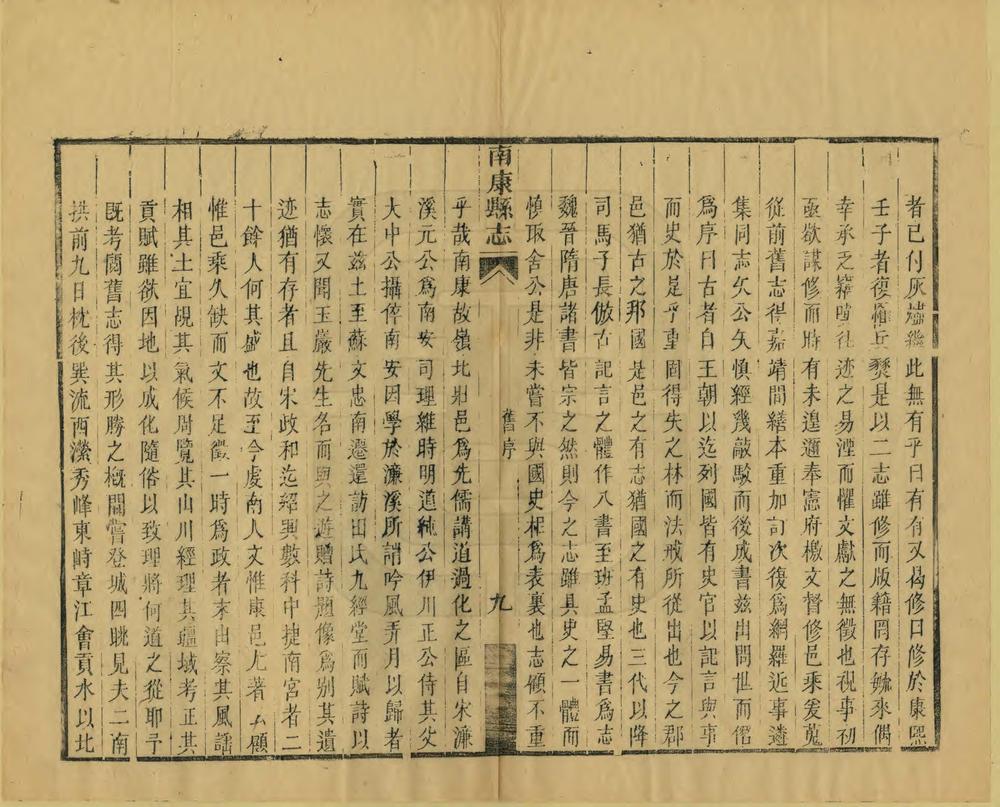 者已付灰燼繼此無有乎曰有有又曷修曰修於康熙
壬子者復罹兵燹是以二志雖修而版籍罔存姚來偶
幸承乏籍 往迹之易湮而懼文獻之無徵也視事初
亟欲謀修而時有未遑邇奉憲府檄文督修邑乘爰蒐
從前舊志得嘉靖間繕本重加訂次復爲網羅近事遴
集同志矢公矢愼經幾敲駁而後成書茲出問世而僭
爲序曰古者自王朝以迄列國皆有史官以記言與事
而史於是乎重固得失之林而法戒所從出也今之郡
邑猶古之邦國是邑之有志猶國之有史也三代以降
司馬子長倣古記言之體作八書至班孟堅易書爲志
魏晉隋唐諸書皆宗之然則今之志雖具史之一體而
愼取舍公是非未嘗不與國史相爲表裏也志顧不重
南康縣志
舊序
九
乎哉南康故嶺北壯邑爲先儒講道過化之區自宋濂
溪元公爲南安司理維時明道純公伊川正公侍其父
大中公攝倅南安因學於濂溪所謂吟風弄月以歸者
實在茲土至蘇文忠南遷還訪田氏九經堂而賦詩以
志懷又聞玉巖先生名而與之遊贈詩題像爲別其遺
迹猶有存者且自宋政和迄紹興數科中捷南宮者二
十餘人何其盛也故至今虔南人文惟康邑尤著 顧
惟邑乘久缺而文不足徵一時爲政者末由察其風謠
相其土宜覘其氣候周覽其山川經理其疆域考正其
貢賦雖欲因地以成化隨俗以致理將何道之從耶予
旣考閱舊志得其形勝之槪間嘗登城四眺見夫二南
拱前九日枕後巽流西瀠秀峰東峙章江會貢水以北